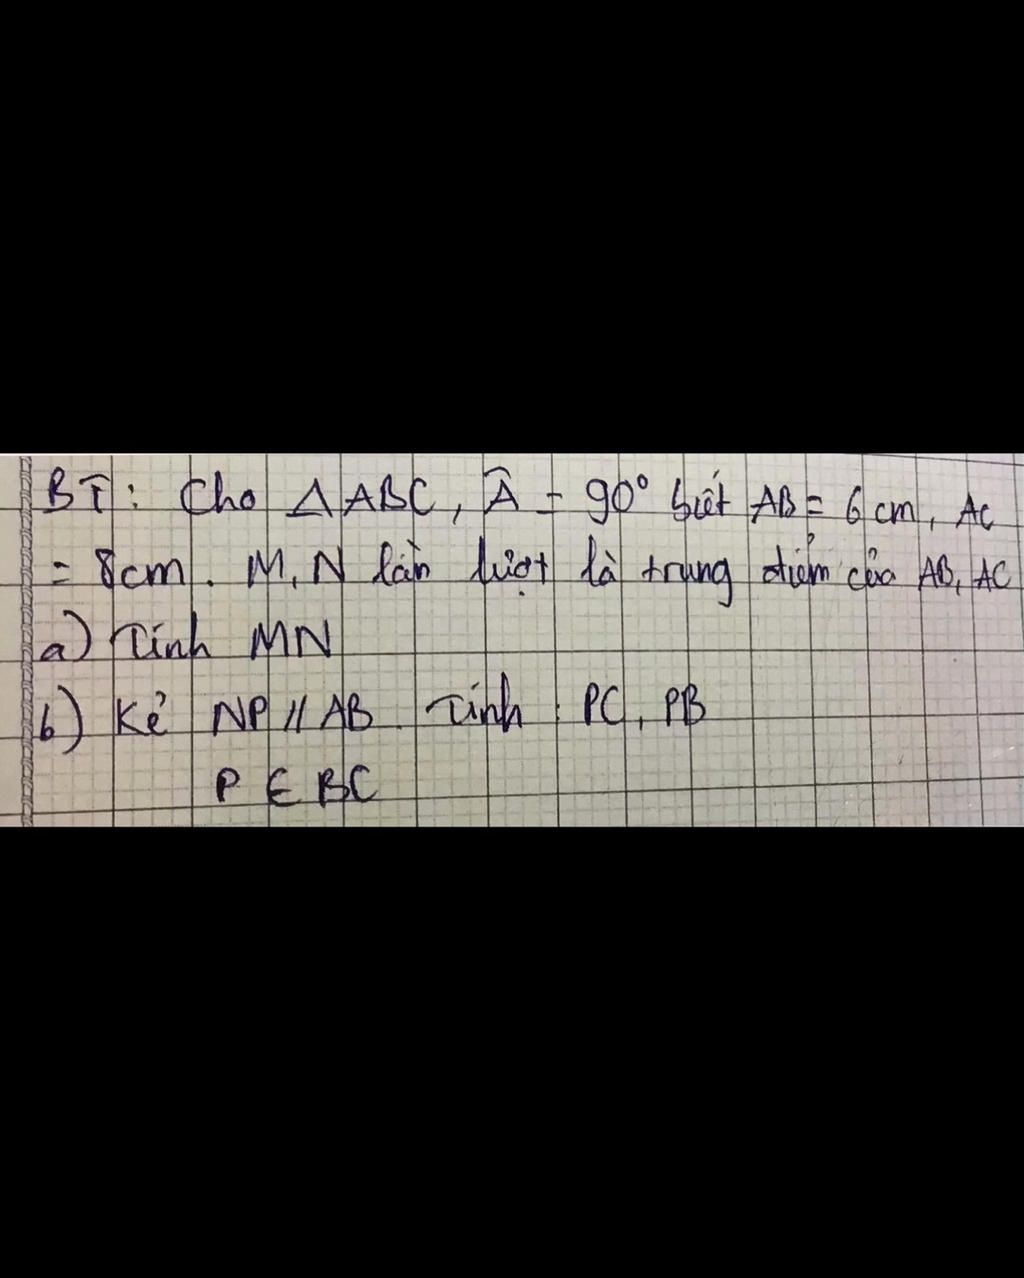 BT: Cho △ABC, Â = 90° biết AB = 6cm, AC
= 8cm. M, N lần lượt là trung điểm của AB, AC
a) Tính MN
b) Kẻ NP // AB. Tính : PC, PB
P ∈ BC